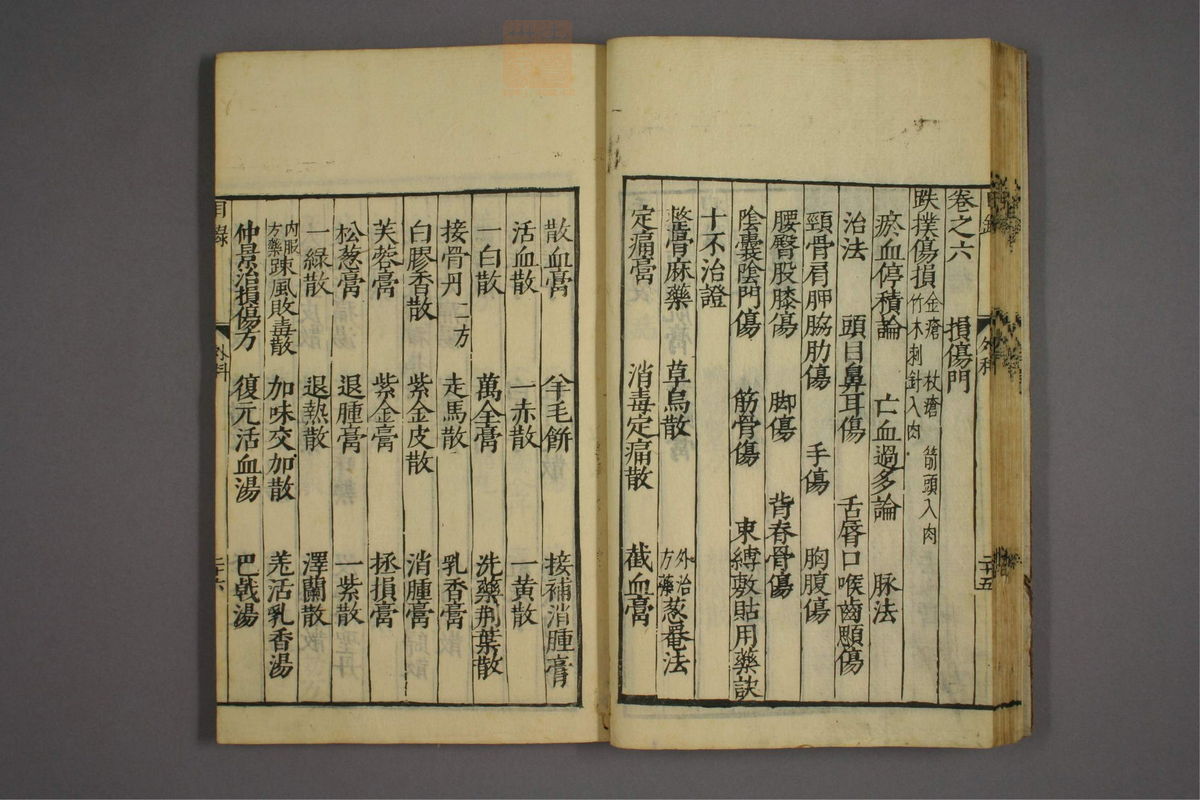 卷之六 損傷門
跌撲傷損 金瘡 杖瘡 箭頭入肉 竹木刺針入肉
瘀血停積論 亡血過多論 脉法
治法 頭目鼻耳傷 舌脣口喉齒顋傷
頸骨肩胛脇肋傷 手傷 胸腹傷
腰臀股膝傷 脚傷 背脊骨傷
陰囊陰門傷 筋骨傷 束縛敷貼用藥訣
十不治證
整骨麻藥 草烏散 外治方藥 葱罨法
定痛膏 消毒定痛散 截血膏
外科
二十五
散血膏 羊毛餅 接補消腫膏
活血散 一赤散 一黃散
一白散 萬全膏 洗藥荆葉散
接骨丹二方 走馬散 乳香膏
白膠香散 紫金皮散 消腫膏
芙蓉膏 紫金膏 拯損膏
松葱膏 退腫膏 一紫散
一緑散 退熱散 澤蘭散
內服方藥 踈風敗毒散 加味交加散 羗活乳香湯
仲景治損傷方 復元活血湯 巴戟湯
目錄 外科
二十六